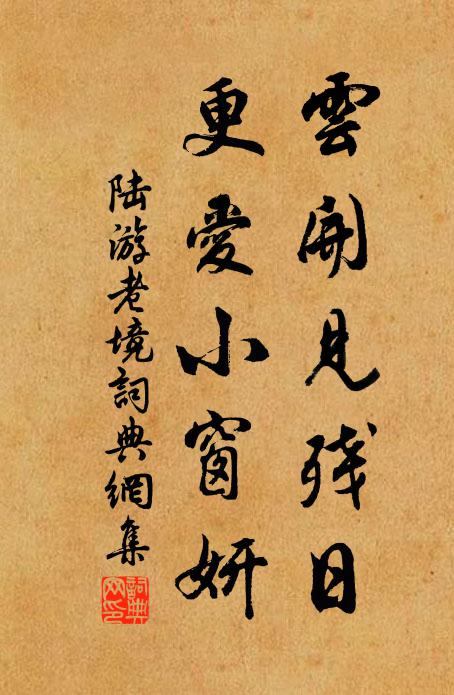 雲開見残日
更愛小窗妍
陸游老境詞典網集
詞典网印